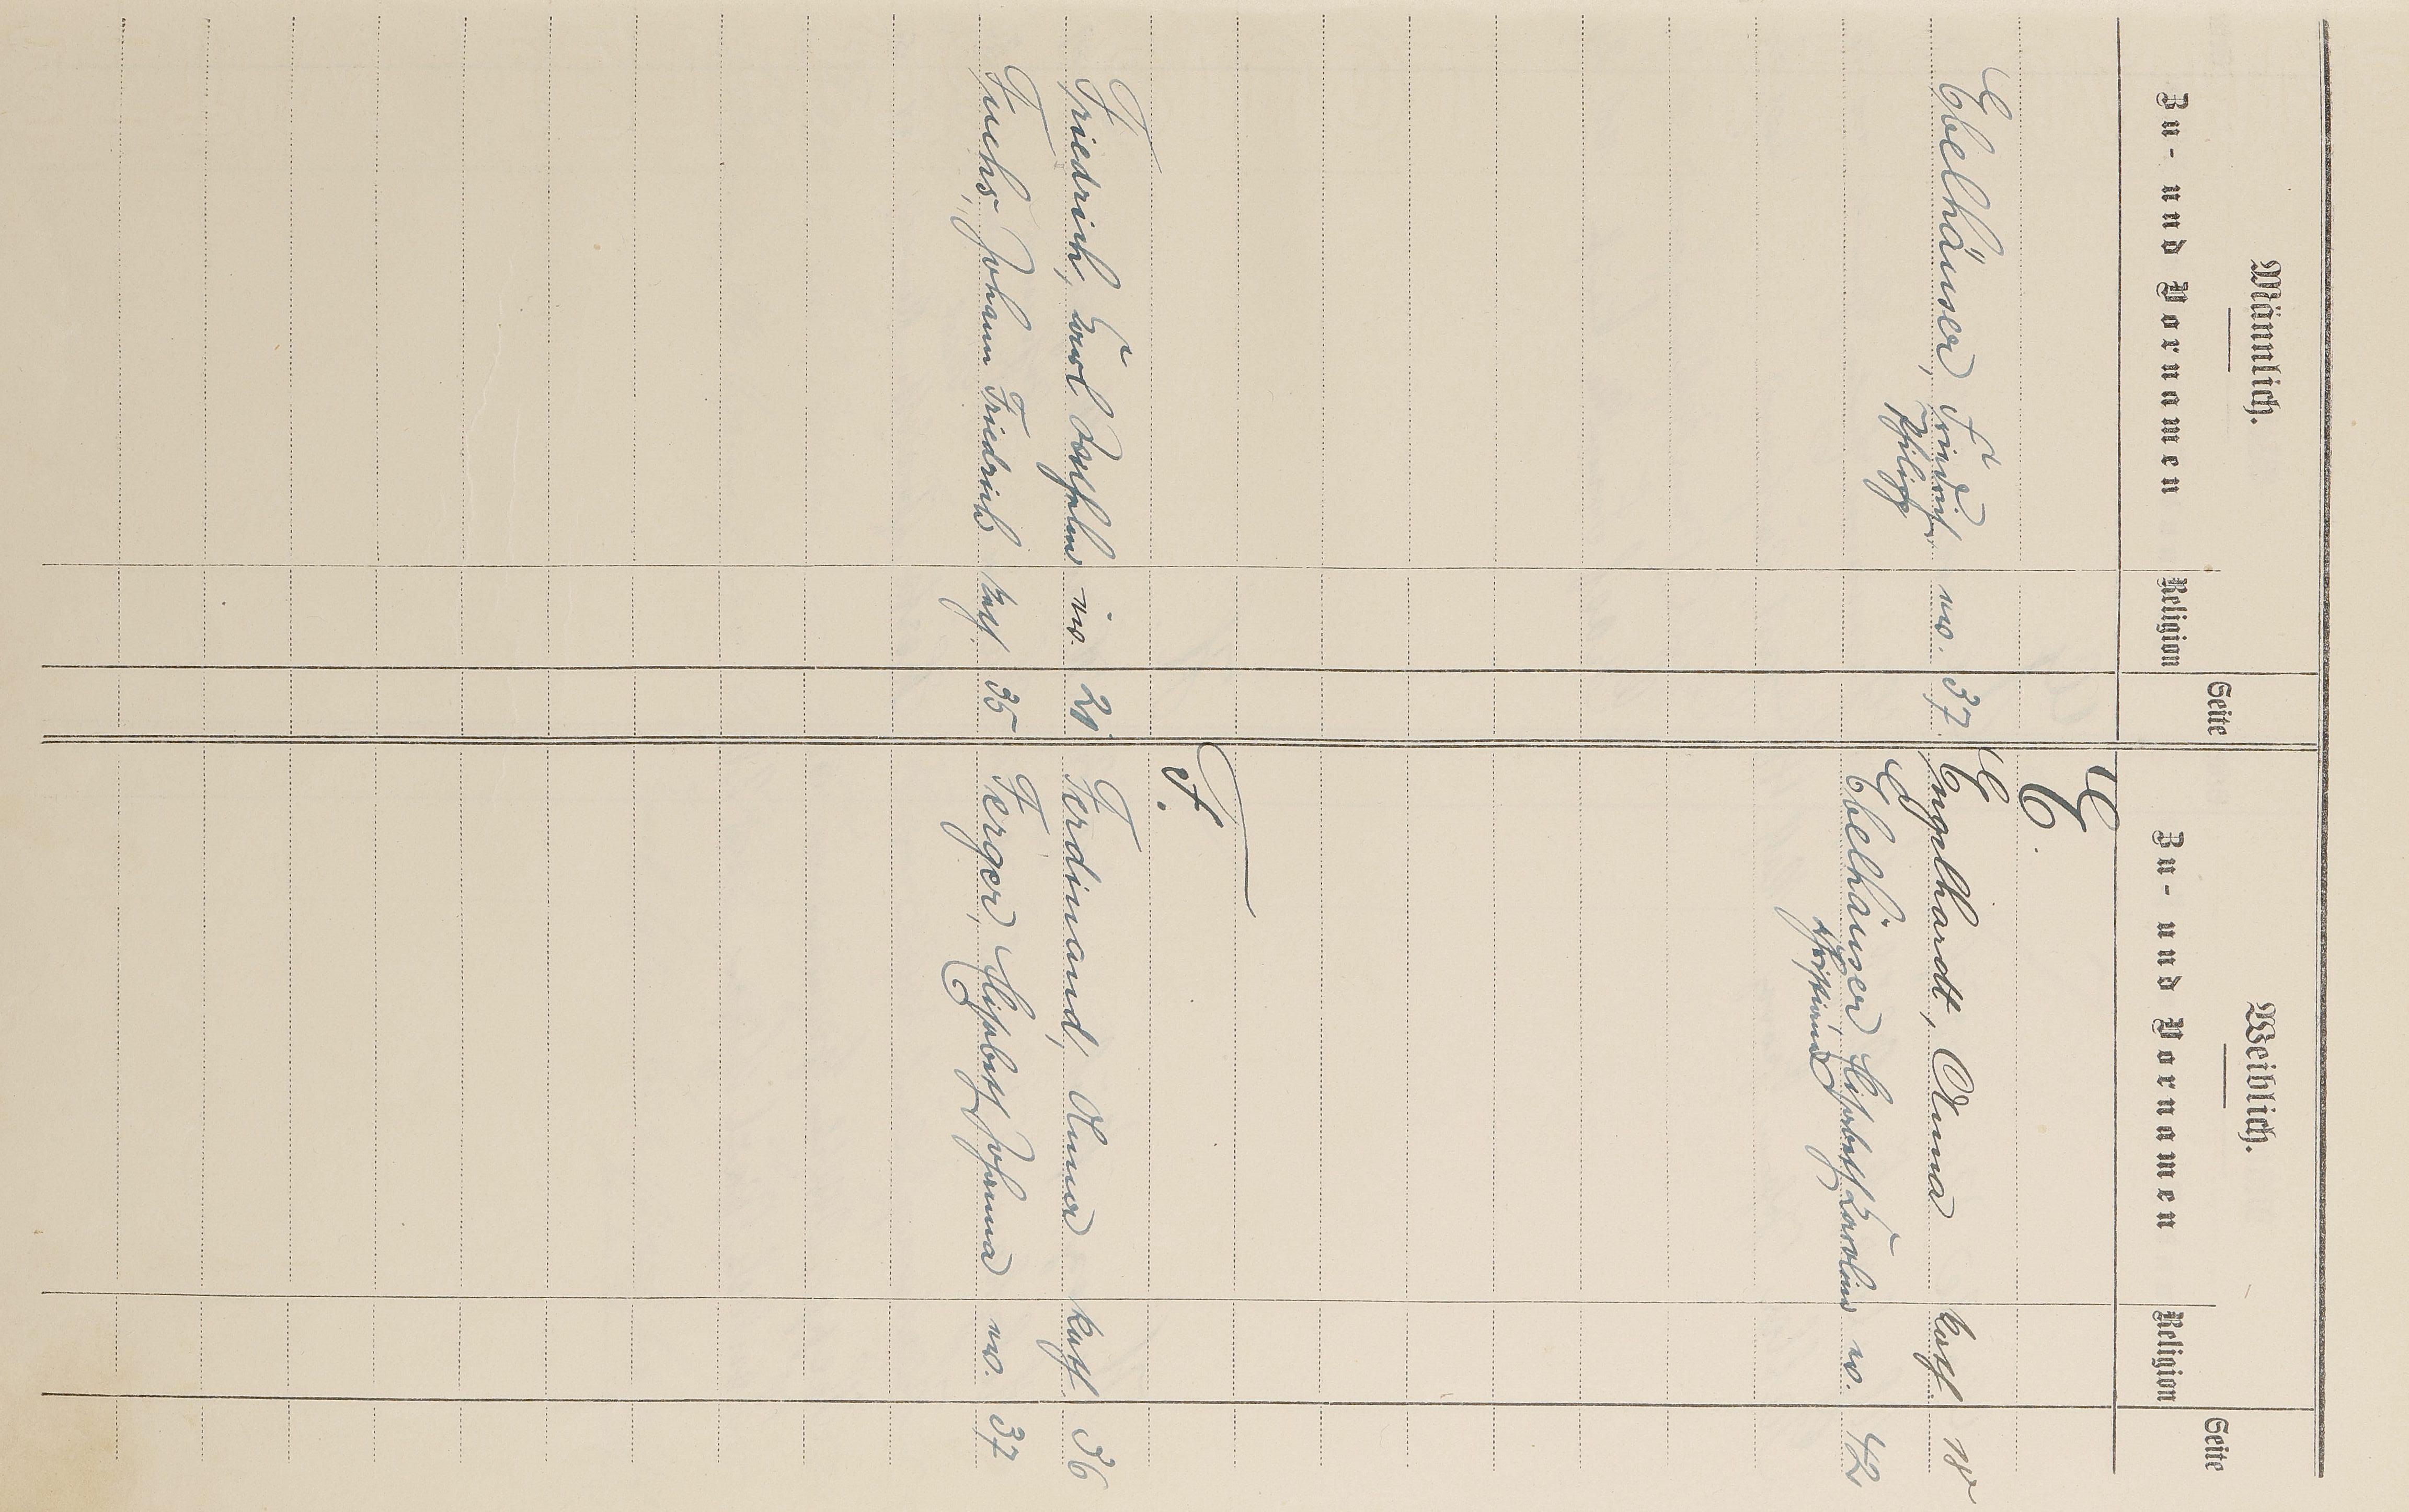 Männlich. Weiblich.
Zu- und Vornamen Religion Seite Zu- und Vornamen Religion Seite
E.
Ebelhäuser, Friedrich ev. 37. Engelhardt, Anna kath. 18
Philipp
Ebelhäuser, Elisabeth Karoline ev. 42
Christiane
F.
Friedrich, Karl Wilhelm ev. 21. Ferdinand, Anna kath. 36
Fuchs, Johann Friedrich kath. 35 Ferger, Elisabeth Johanna ev. 37